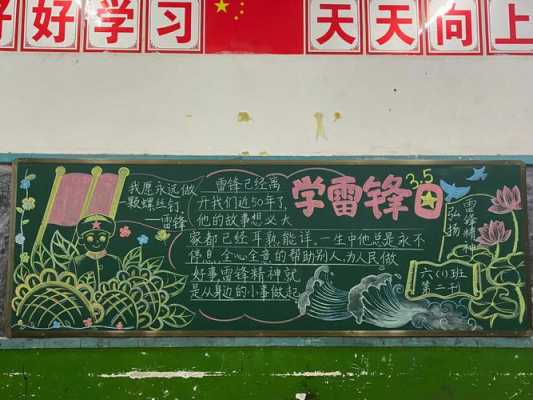 好好学习
天天向上
我愿永远做
一颗螺丝钉.
—雷锋
雷锋已经离
开我们近50年了,
他的故事想必大
家都已经耳熟能详,一生中他总是永不
停息,全心全意的帮助别人,为人民做
好事雷锋精神就
是从身边的小事做起
学雷锋日
3.5
弘扬
雷锋精神
六(1)班
第二刊